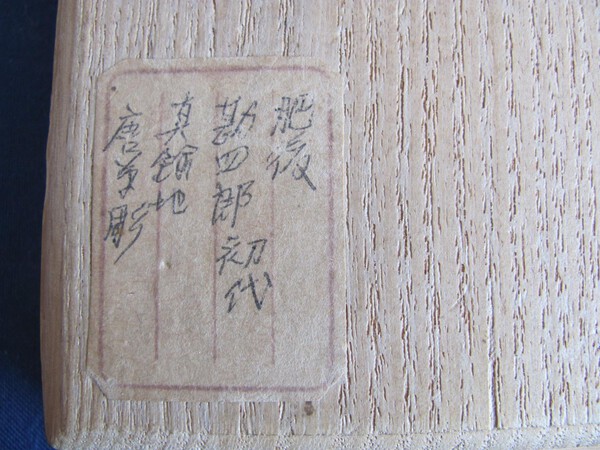 肥後
勘四郎初代
真鍮地
唐草彫